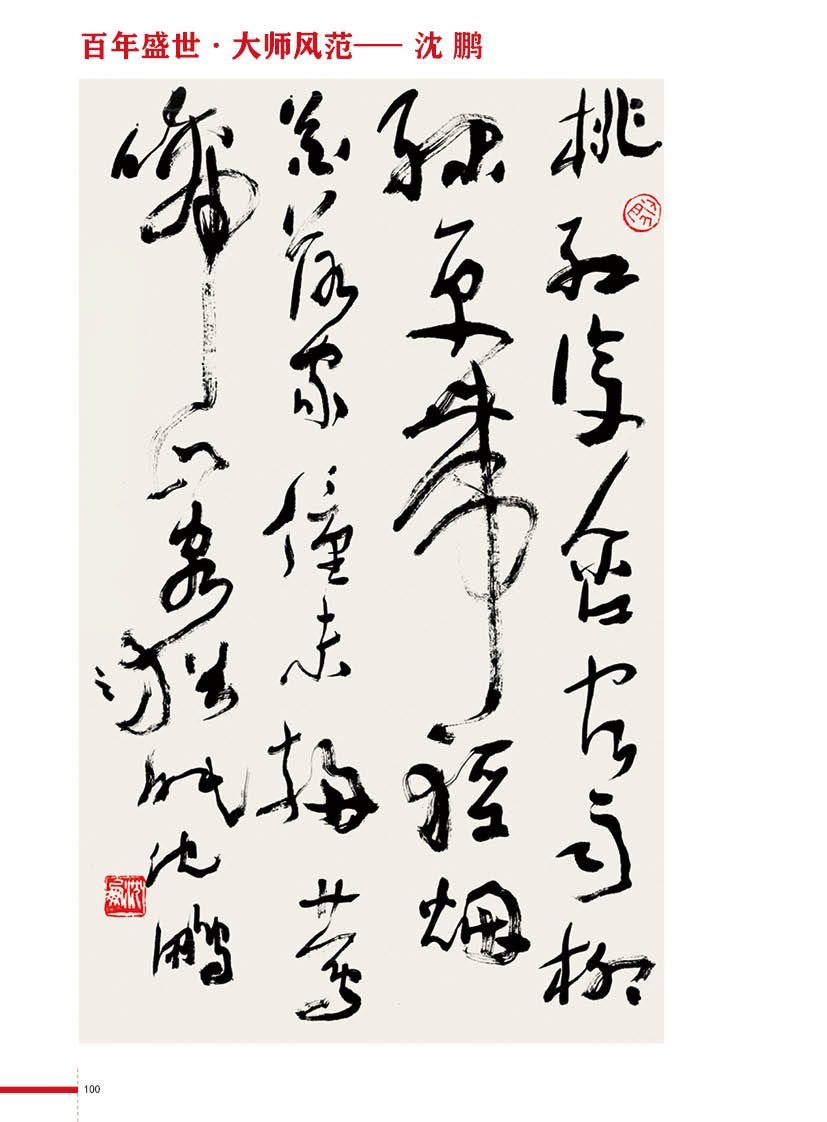 百年盛世·大师风范—— 沈 鹏
桃红復含宿雨柳
绿更帶烟
花落家僮未掃莺
啼山客猶眠沈鹏
100